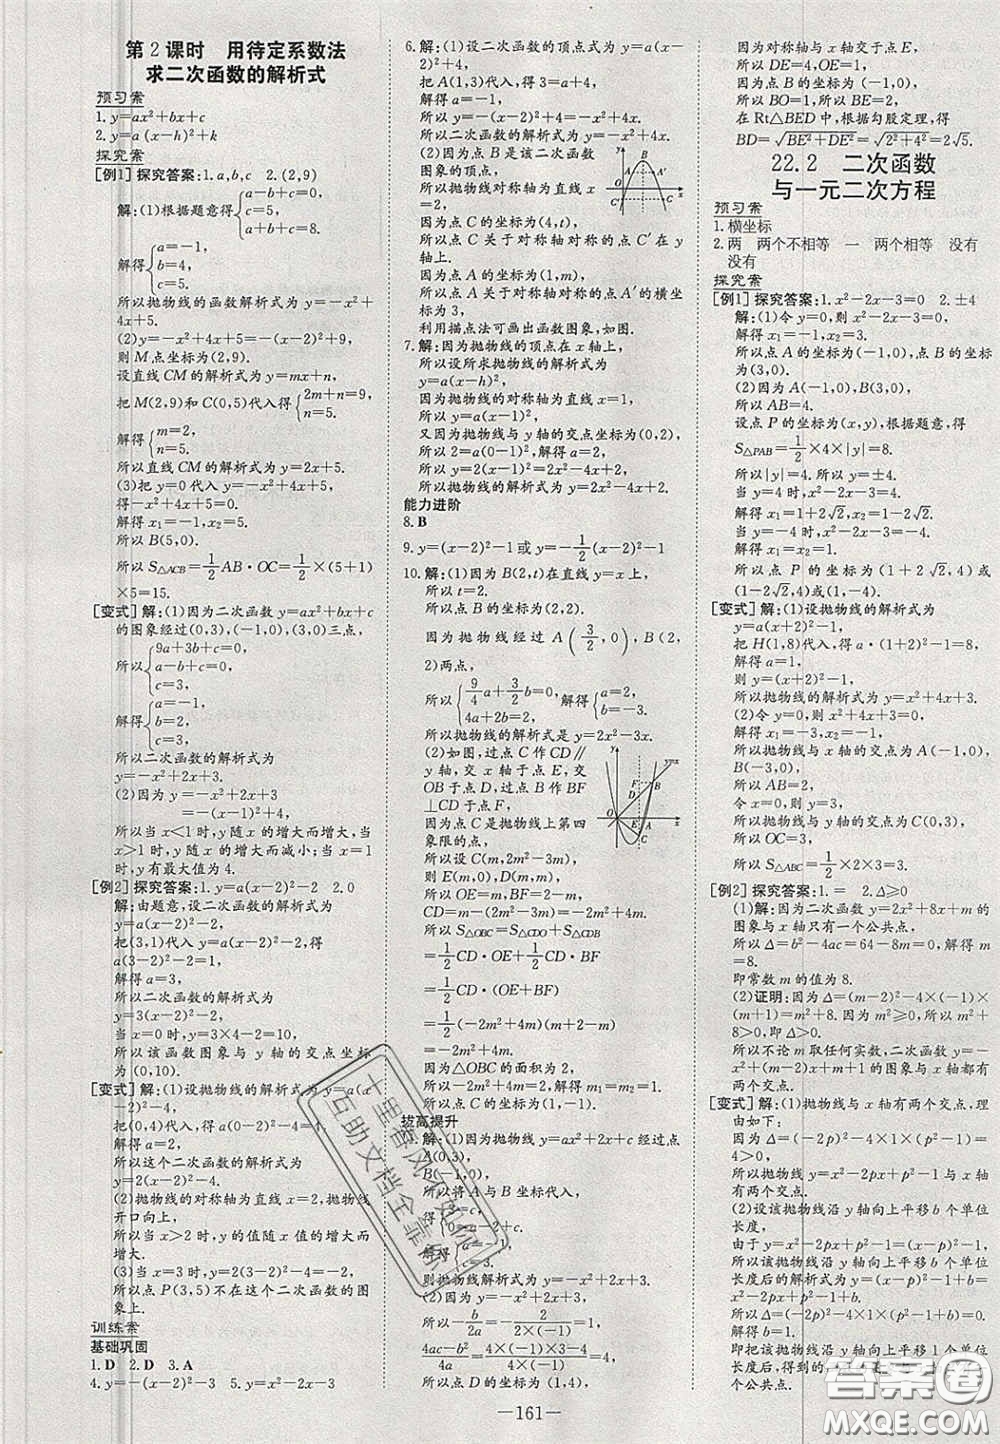 第2课时 用待定系数法
求二次函数的解析式
预习案
1. y=ax²+bx+c
2. y=a(x-h)²+k
探究案
[例1] 探究答案:1. a,b,c 2. (2,9)
解:(1)根据题意得{a-b+c=0, c=5, a+b+c=8.
解得{a=-1, b=4, c=5.
所以抛物线的函数解析式为y=-x²+
4x+5.
(2)y=-x²+4x+5=-(x-2)²+9,
则M点坐标为(2,9).
设直线CM的解析式为y=mx+n,
把M(2,9)和C(0,5)代入得{2m+n=9, n=5.
解得{m=2, n=5.
所以直线CM的解析式为y=2x+5.
(3)把y=0代入y=-x²+4x+5,
得-x²+4x+5=0.
解得x₁=-1,x₂=5.
所以B(5,0).
所以S△ACB=1/2 AB·OC=1/2×(5+1)
×5=15.
[变式] 解:(1)因为二次函数y=ax²+bx+c
的图象经过(0,3),(-1,0),(3,0)三点,
所以{9a+3b+c=0, a-b+c=0, c=3,
解得{a=-1, b=2, c=3,
所以二次函数的解析式为
y=-x²+2x+3.
(2)因为y=-x²+2x+3
=-(x-1)²+4,
所以当x<1时,y随x的增大而增大,当
x>1时,y随x的增大而减小;当x=1
时,y有最大值为4.
[例2] 探究答案:1. y=a(x-2)²-2 2. 0
解:由题意,设二次函数的解析式为
y=a(x-2)²-2,
把(3,1)代入y=a(x-2)²-2,得
a(3-2)²-2=1,
解得a=3,
所以二次函数的解析式为
y=3(x-2)²-2,
当x=0时,y=3×4-2=10,
所以该函数图象与y轴的交点坐标
为(0,10).
[变式] 解:(1)设抛物线的解析式为y=a(x
-2)²-4,
把(0,4)代入得a·(-2)²-4=4,
解得a=2,
所以这个二次函数的解析式为
y=2(x-2)²-4.
(2)抛物线的对称轴为直线x=2,抛物线
开口向上,
所以当x>2时,y的值随x的增大而
增大.
(3)当x=3时,y=2(x-2)²-4=-2,
所以点P(3,5)不在这个函数的图
象上.
训练案
基础巩固
1. D 2. D 3. A
4. y=-(x-3)²+2 5. y=x²-2x-3
6. 解:(1)设二次函数的顶点式为y=a(x-
2)²+4,
把A(1,3)代入,得a+4=3,
解得a=-1,
所以y=-(x-2)²+4=-x²+4x.
所以二次函数的解析式为y=-x²+4x.
(2)因为点B是该二次函数
图象的顶点,
所以抛物线对称轴为直线x
=2,
因为点C的坐标为(4,t),
所以点C关于对称轴对称的点C′在y
轴上.
因为点A的坐标为(1,3),
所以点A关于对称轴对称的点A′的横坐
标为3,
利用描点法可画出函数图象,如图.
7. 解:因为抛物线的顶点在x轴上,
所以设所求抛物线的解析式为
y=a(x-h)².
因为抛物线的对称轴为直线x=1,
所以y=a(x-1)²,
又因为抛物线与y轴的交点坐标为(0,2),
所以2=a(0-1)²,解得a=2,
所以y=2(x-1)²,即y=2x²-4x+2.
所以抛物线的解析式为y=2x²-4x+2.
能力进阶
8. B
9. y=(x-2)²-1或y=-1/3(x-2)²-1
10. 解:(1)因为B(2,t)在直线y=x上,
所以t=2.
所以点B的坐标为(2,2).
因为抛物线经过A(3/2,0),B(2,
2)两点,
所以{9/4a+3/2b=0, 4a+2b=2, 解得{a=2, b=-3,
所以抛物线的解析式是y=2x²-3x.
(2)如图,过点C作CD∥
y轴,交x轴于点E,交
OB于点D,过点B作BF
⊥CD于点F,
因为点C是抛物线上第四
象限的点,
所以设C(m,2m²-3m),
则E(m,0),D(m,m),
所以OE=m,BF=2-m,
CD=m-(2m²-3m)=-2m²+4m,
所以S△OBC=S△CDO+S△CDB
=1/2 CD·OE+1/2 CD·BF
=1/2 CD·(OE+BF)
=1/2(-2m²+4m)×2
=-2m²+4m.
因为△OBC的面积为2,
所以-2m²+4m=2,解得m₁=m₂=1.
所以点C的坐标为(1,-1).
拔高提升
解:(1)因为抛物线y=ax²+2x+c经过点
A(0,3),
B(-1,0),
所以将A与B坐标代入,
则抛物线解析式为y=-x²+2x+3.
(2)y=-x²+2x+3,
-b/2a=-2/(2×(-1))=1,
(4ac-b²)/4a=(4×(-1)×3-4)/(4×(-1))=4,
所以顶点D的坐标为(1,4),
因为对称轴与x轴交于点E,
所以DE=4,OE=1,
因为点B的坐标为(-1,0),
所以BO=1,所以BE=2,
在Rt△BED中,根据勾股定理,得
BD=√(BE²+DE²)=√(2²+4²)=2√5.
22.2 二次函数
与一元二次方程
预习案
1. 横坐标
2. 两 两个不相等 一 两个相等 没有
没有
探究案
[例1] 探究答案:1. x²-2x-3=0 2. ±4
解:(1)令y=0,则x²-2x-3=0,
解得x₁=-1,x₂=3,
所以点A的坐标为(-1,0),点B的坐标
为(3,0).
(2)因为A(-1,0),B(3,0),
所以AB=4.
设点P的坐标为(x,y),根据题意,得
S△PAB=1/2×4×|y|=8.
所以|y|=4,所以y=±4.
当y=4时,x²-2x-3=4,
解得x₁=1+2√2,x₂=1-2√2.
当y=-4时,x²-2x-3=-4,
解得x₁=x₂=1.
所以点P的坐标为(1+2√2,4)或
(1-2√2,4)或(1,-4).
[变式] 解:(1)设抛物线的解析式为
y=a(x+2)²-1,
把H(1,8)代入,得a·(1+2)²-1=8,
解得a=1,
则y=(x+2)²-1=x²+4x+3.
所以抛物线的解析式为y=x²+4x+3.
(2)令y=0,则x²+4x+3=0,
解得x₁=-1,x₂=-3.
所以抛物线与x轴的交点坐标为
(-1,0),(-3,0).
所以AB=2.
令x=0,则y=3,
所以抛物线与y轴的交点为C(0,3),
所以OC=3,
所以S△ABC=1/2×2×3=3.
[例2] 探究答案:1. = 2. Δ≥0
(1)解:因为二次函数y=2x²+8x+m的
图象与x轴只有一个公共点.
所以Δ=b²-4ac=64-8m=0,解得m
=8.
即常数m的值为8.
(2)证明:因为Δ=(m-2)²-4×(-1)×
(m+1)=m²+8,因为m²≥0,所以m²+
8>0,即Δ>0.
所以不论m取任何实数,二次函数y=
[变式] 解:(1)抛物线与x轴有两个交点,理
由如下:
因为Δ=(-2p)²-4×1×(p²-1)=
4>0,
所以抛物线y=x²-2px+p²-1与x轴
有两个交点.
(2)设该抛物线沿y轴向上平移k个单位
长度,
由于y=x²-2px+p²-1,
所以该抛物线沿y轴向上平移k个单位
长度后的抛物线的解析式为
y=x²-2px+p²-1+k,
所以Δ=(-2p)²-4×1×(p²-1+k)
=0,解得k=1,
即把该抛物线沿y轴向上平移1个单位
—161—
十里春风不如你
互助文档全靠你
答案圈
MXQE.COM